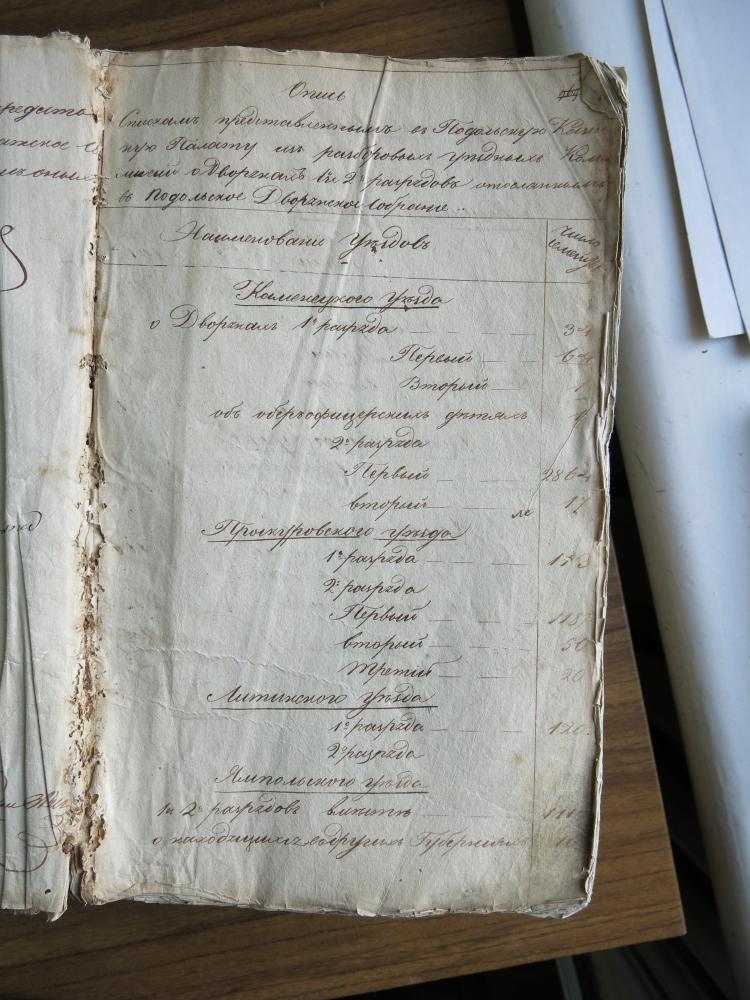 Опись
Спискамъ представленнымъ въ Подольскую Казен
ную Палату изъ разборовыхъ уѣздныхъ Ком
мисій о Дворянахъ 1 и 2 разрядовъ отосланныхъ
въ Подольское Дворянское Собрание
Наименование Уѣздовъ
Число
Каменецкого Уѣзда
о Дворянахъ 1го разряда
Первый
Вторый 1
объ оберъофицерскихъ дѣтяхъ 1
2го разряда
Первый
вторый 17
Проскуровского уѣзда
1го разряда
2го разряда
Первый 118
вторый 50
третий 20
Литинского уѣзда
1го разряда 120
2го разряда
Ямпольского уѣзда
1 и 2 разрядовъ вместѣ
о находящихся въ другихъ Губернияхъ